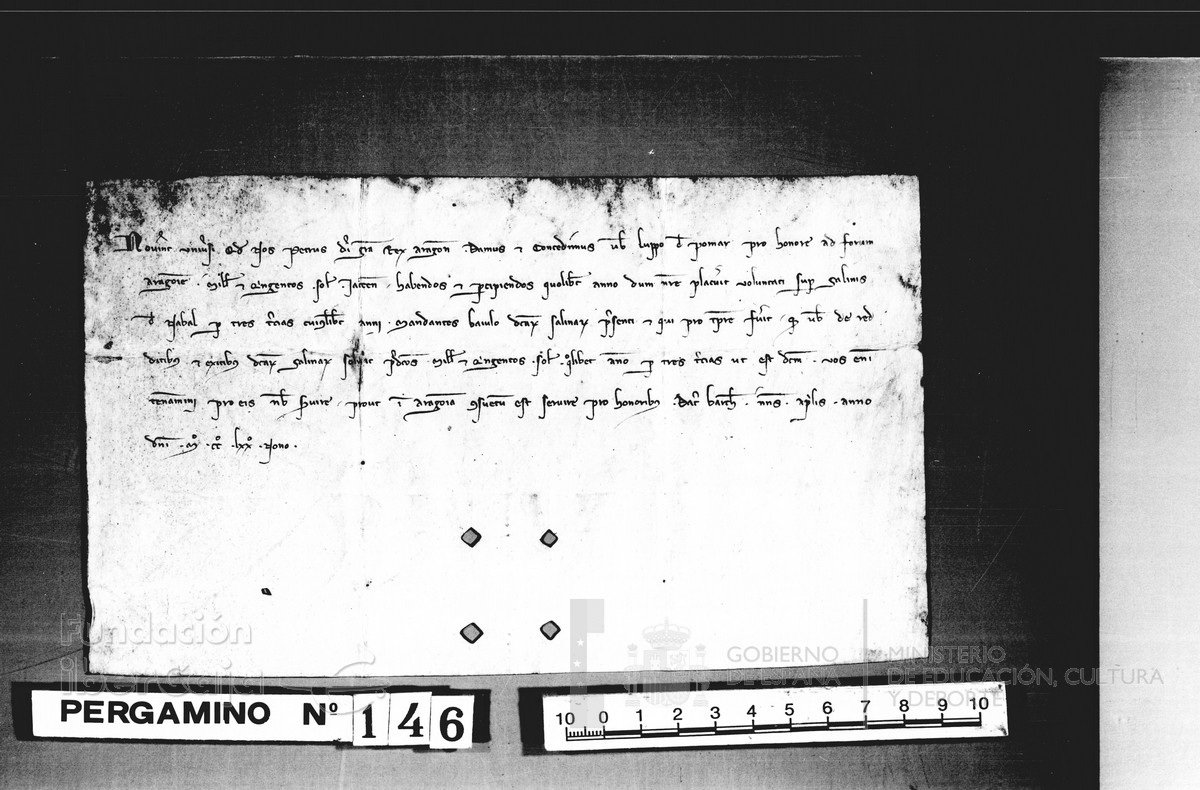 Noverint universi quod Nos Petrus dei gra Rex Aragon. Damus et Concedimus vob luppo d pomar pro honore ad forum
aragonie. Mill et Quingentos sol. Jaccen. habendos et percipiendos quolibet anno dum nre placuerit voluntati super salinis
d Nabal per tres tercias cuiuslibet anni. Mandantes baiulo dcar salinar presenti et qui pro tempore fuerit. quod vob de red
ditibus et exitibus dcar salinar solvat predictos Mill et Quingentos sol. quolibet anno per tres tercias ut est dcm. vos eni
teneamini pro eis nob servire. prout in aragonia consuetu est servire pro honoribus. Dat barch. nns. aprilis. anno
dni. Mº. CCº. lxxº. Nono.
Fundación
iberCaja
GOBIERNO
DE ESPAÑA
MINISTERIO
DE EDUCACIÓN, CULTURA
Y DEPORTE
PERGAMINO Nº 146
10 0 1 2 3 4 5 6 7 8 9 10